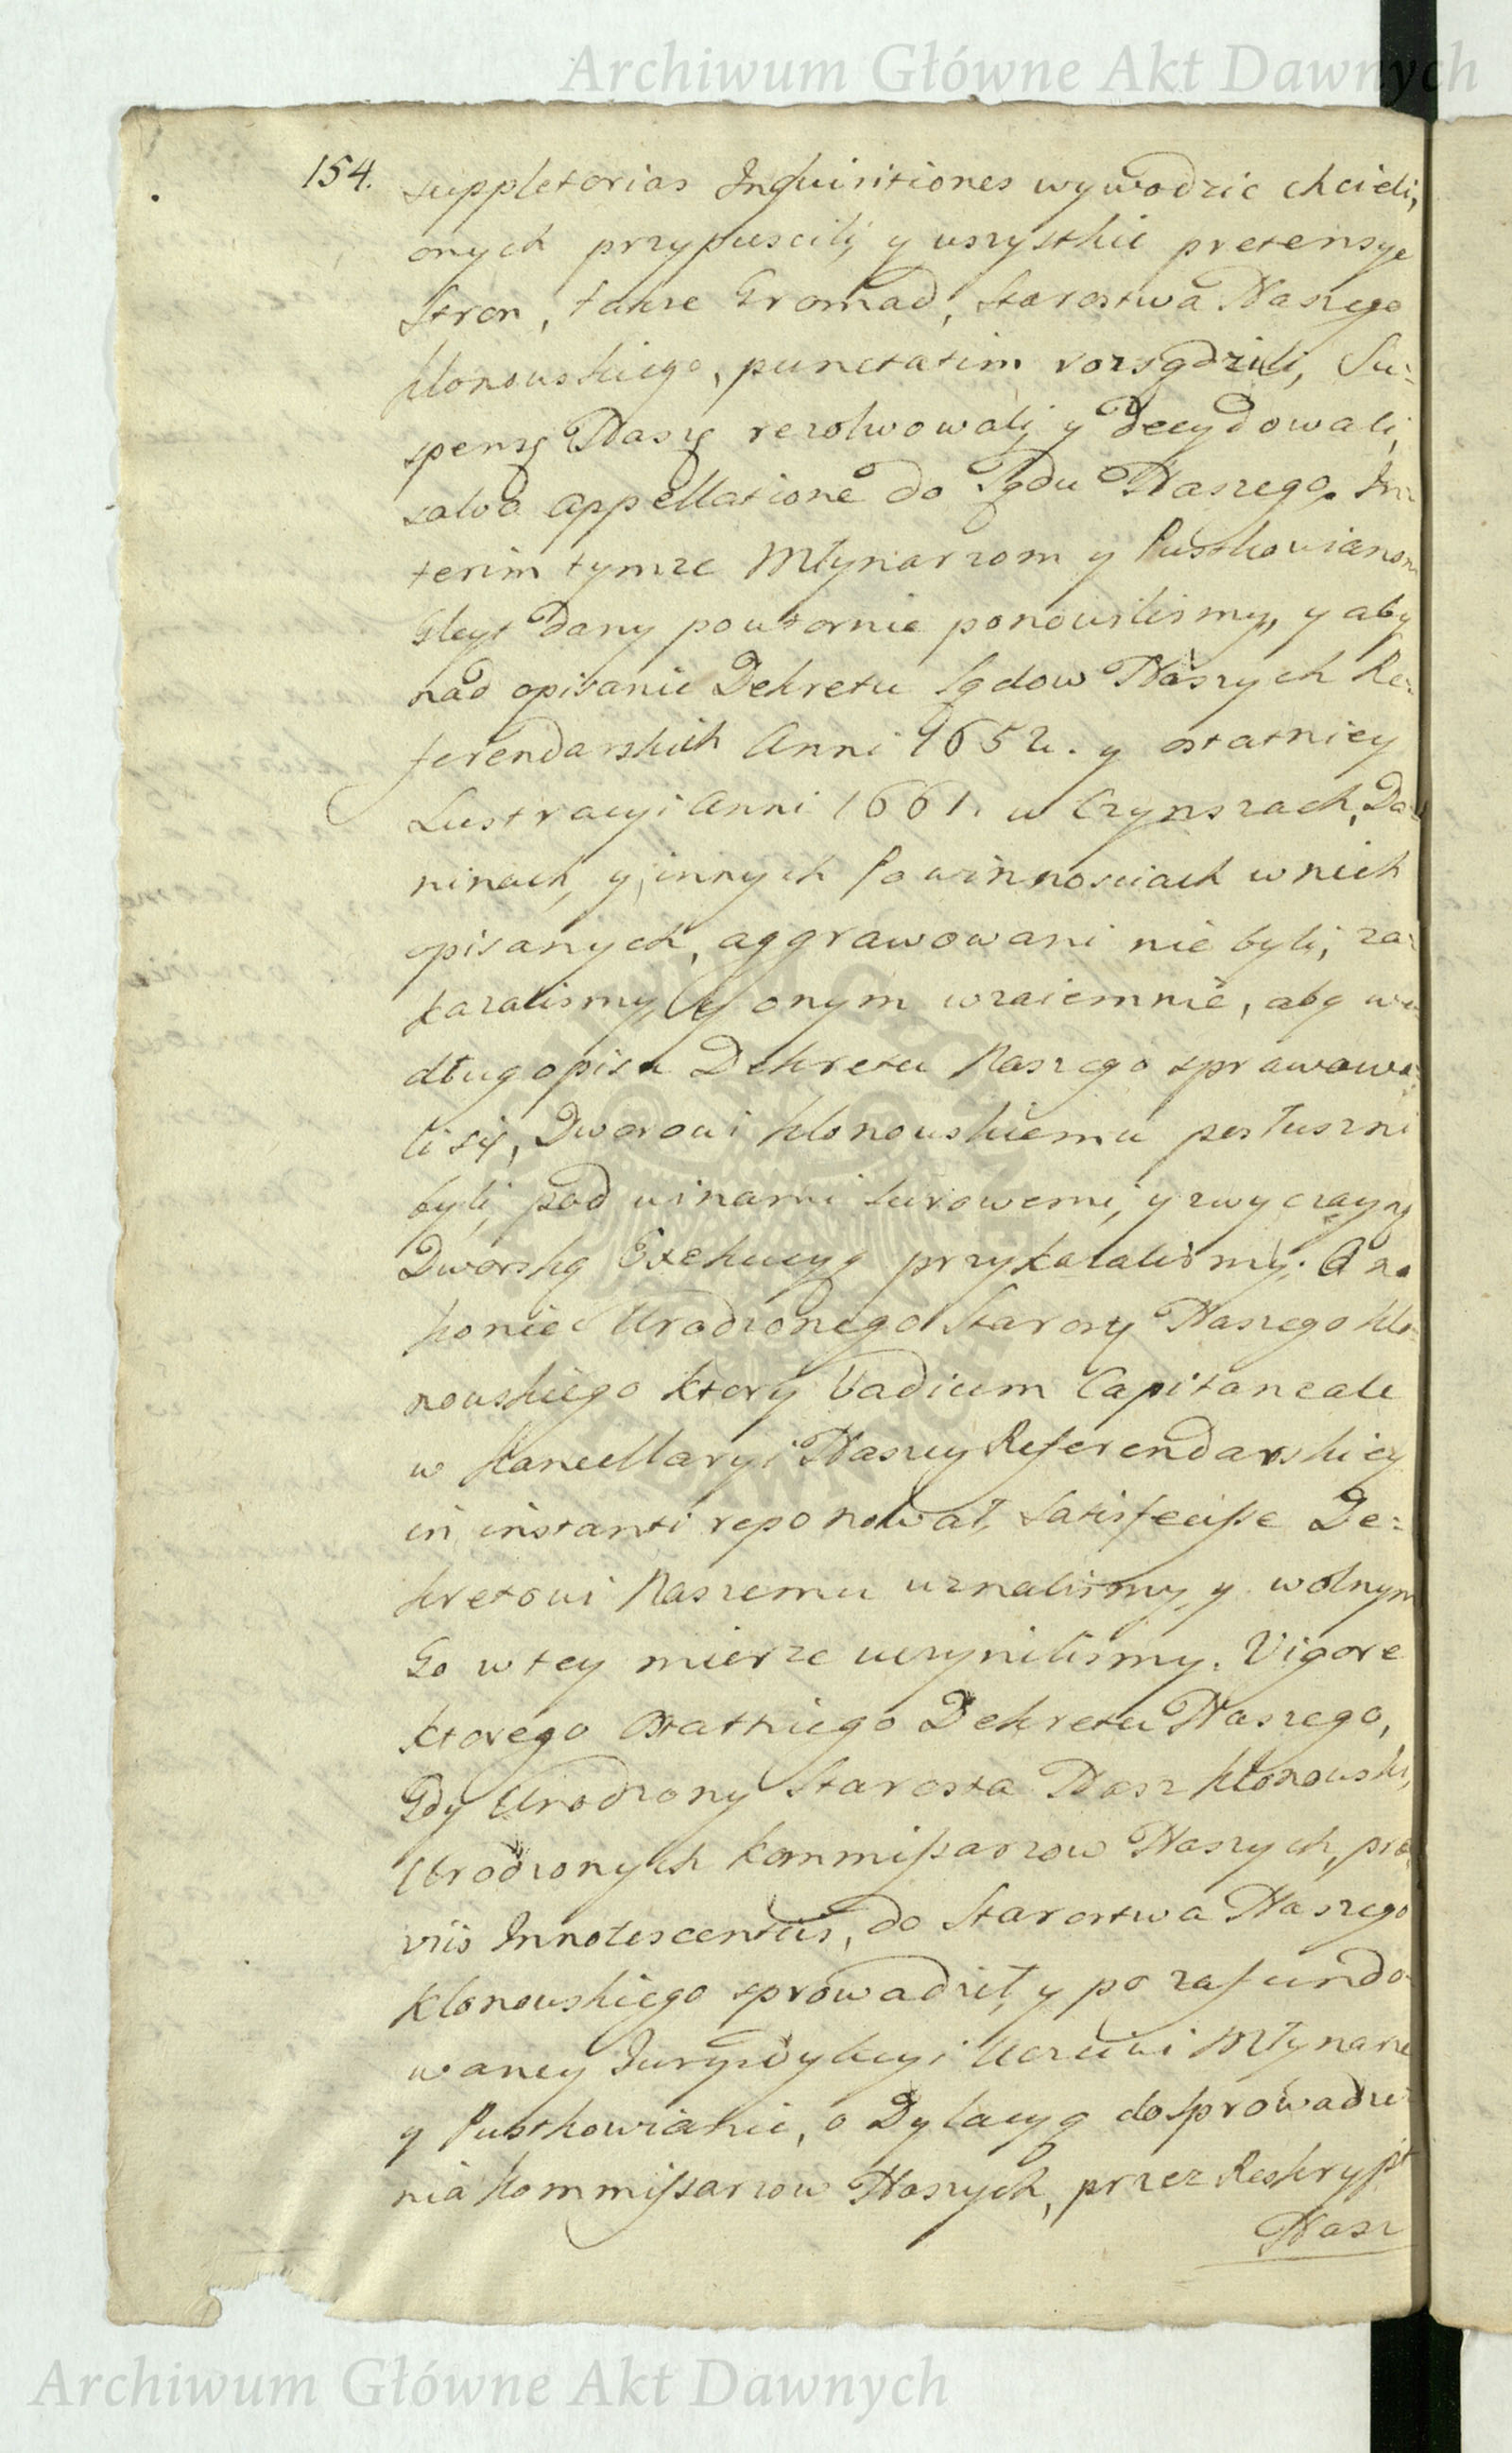 Archiwum Główne Akt Dawnych
154.
suppletorias Inquisitiones wywodzic chcieli,
onych przypuscili, y wszystkie pretensye
Stron, takze Gromad, Starostwa Naszego
Klonowskiego, punctatim rozsądzili, Su:
spensę Naszę rezolwowali, y decydowali,
salva appellatione do Sądu Naszego. In:
terim tymze Młynarzom y Pustkowianom
Gleyt dany powtornie ponowilismy, y aby
nad opisanie Dekretu Sądow Naszych Re:
ferendarskich Anni 1652. y ostatniey
Lustracyi Anni 1661. w Czynszach, Da:
ninach, y innych Powinnosciach w nich
opisanych, aggrawowani nie byli, za:
kazalismy, y onym wzaiemnie, aby we:
dług opisu Dekretu Naszego sprawowa:
li się, Dworowi Klonowskiemu posłuszni
byli, pod winami surowemi, y zwyczayną
Dworską Exekucyą przykazalismy. A na
koniec Urodzonego Starostę Naszego Klo:
nowskiego ktory Vadium Capitaneale
w Kancellaryi Naszey Referendarskiey
in instanti reponował, satisfecisse De:
kretowi Naszemu uznalismy, y wolnym
Go w tey mierze uczynilismy. Vigore
ktorego ostatniego Dekretu Naszego,
Gdy Urodzony Starosta Nasz Klonowski,
Urodzonych Kommissarzow Naszych, præ:
viis Innotescentiis, do Starostwa Naszego
Klonowskiego sprowadził, y po zafundo:
waney Jurysdykcyi Uczciwi Młynarze
y Pustkowianie, o Dylacyą do sprowadze:
nia Kommissarzow Naszych, przez Reskrypt
Nasz
Archiwum Główne Akt Dawnych